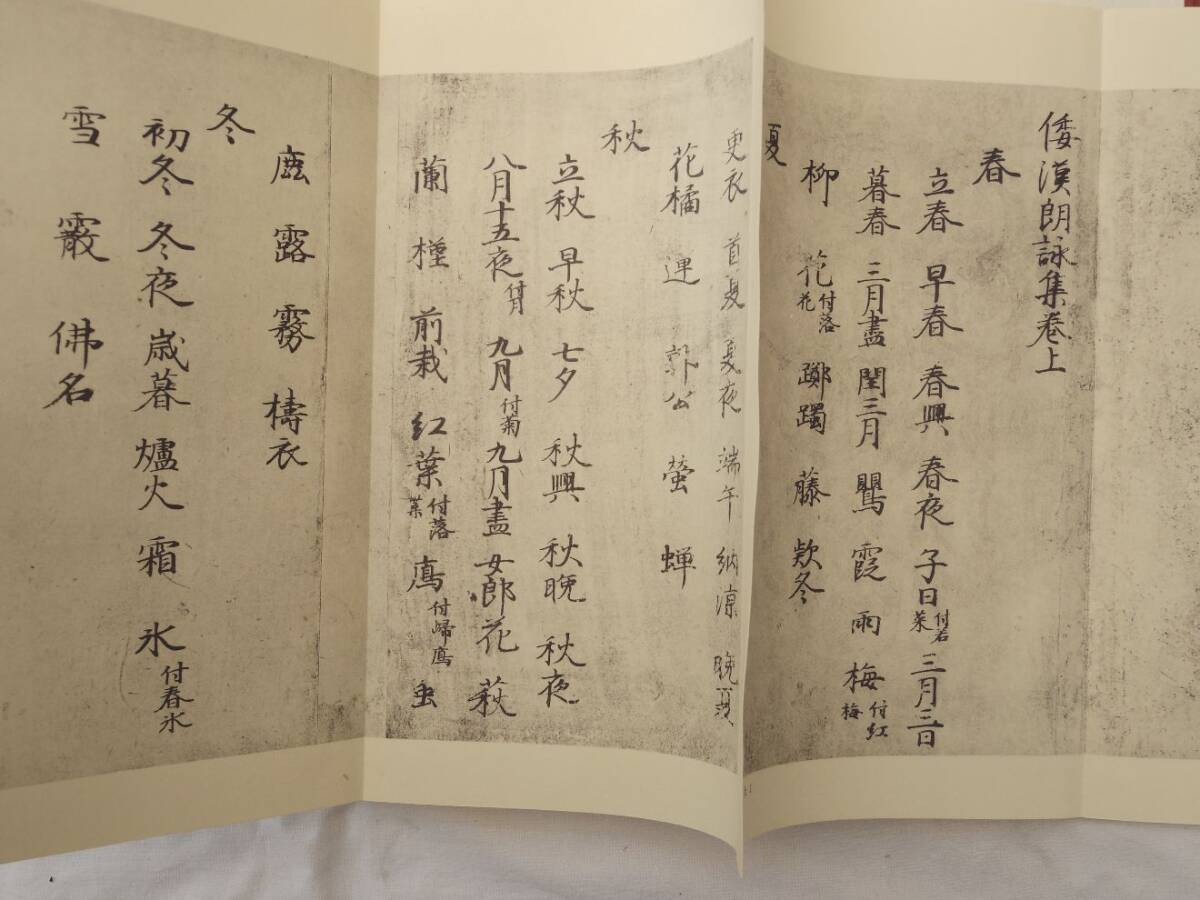 倭漢朗詠集巻上
春
立春 早春 春興 春夜 子日付若菜 三月三日
暮春 三月盡 閏三月 鸎 霞 雨 梅付紅梅
柳 花付落花 躑躅 藤 欵冬
夏
更衣 首夏 夏夜 端午 納凉 晩夏
花橘 蓮 郭公 螢 蟬
秋
立秋 早秋 七夕 秋興 秋晩 秋夜
八月十五夜付月 九月付菊 九月盡 女郎花 萩
蘭 槿 前栽 紅葉付落葉 鴈付歸鴈 虫
鹿 露 霧 擣衣
冬
初冬 冬夜 歳暮 爐火 霜 氷付春氷
雪 霰 佛名